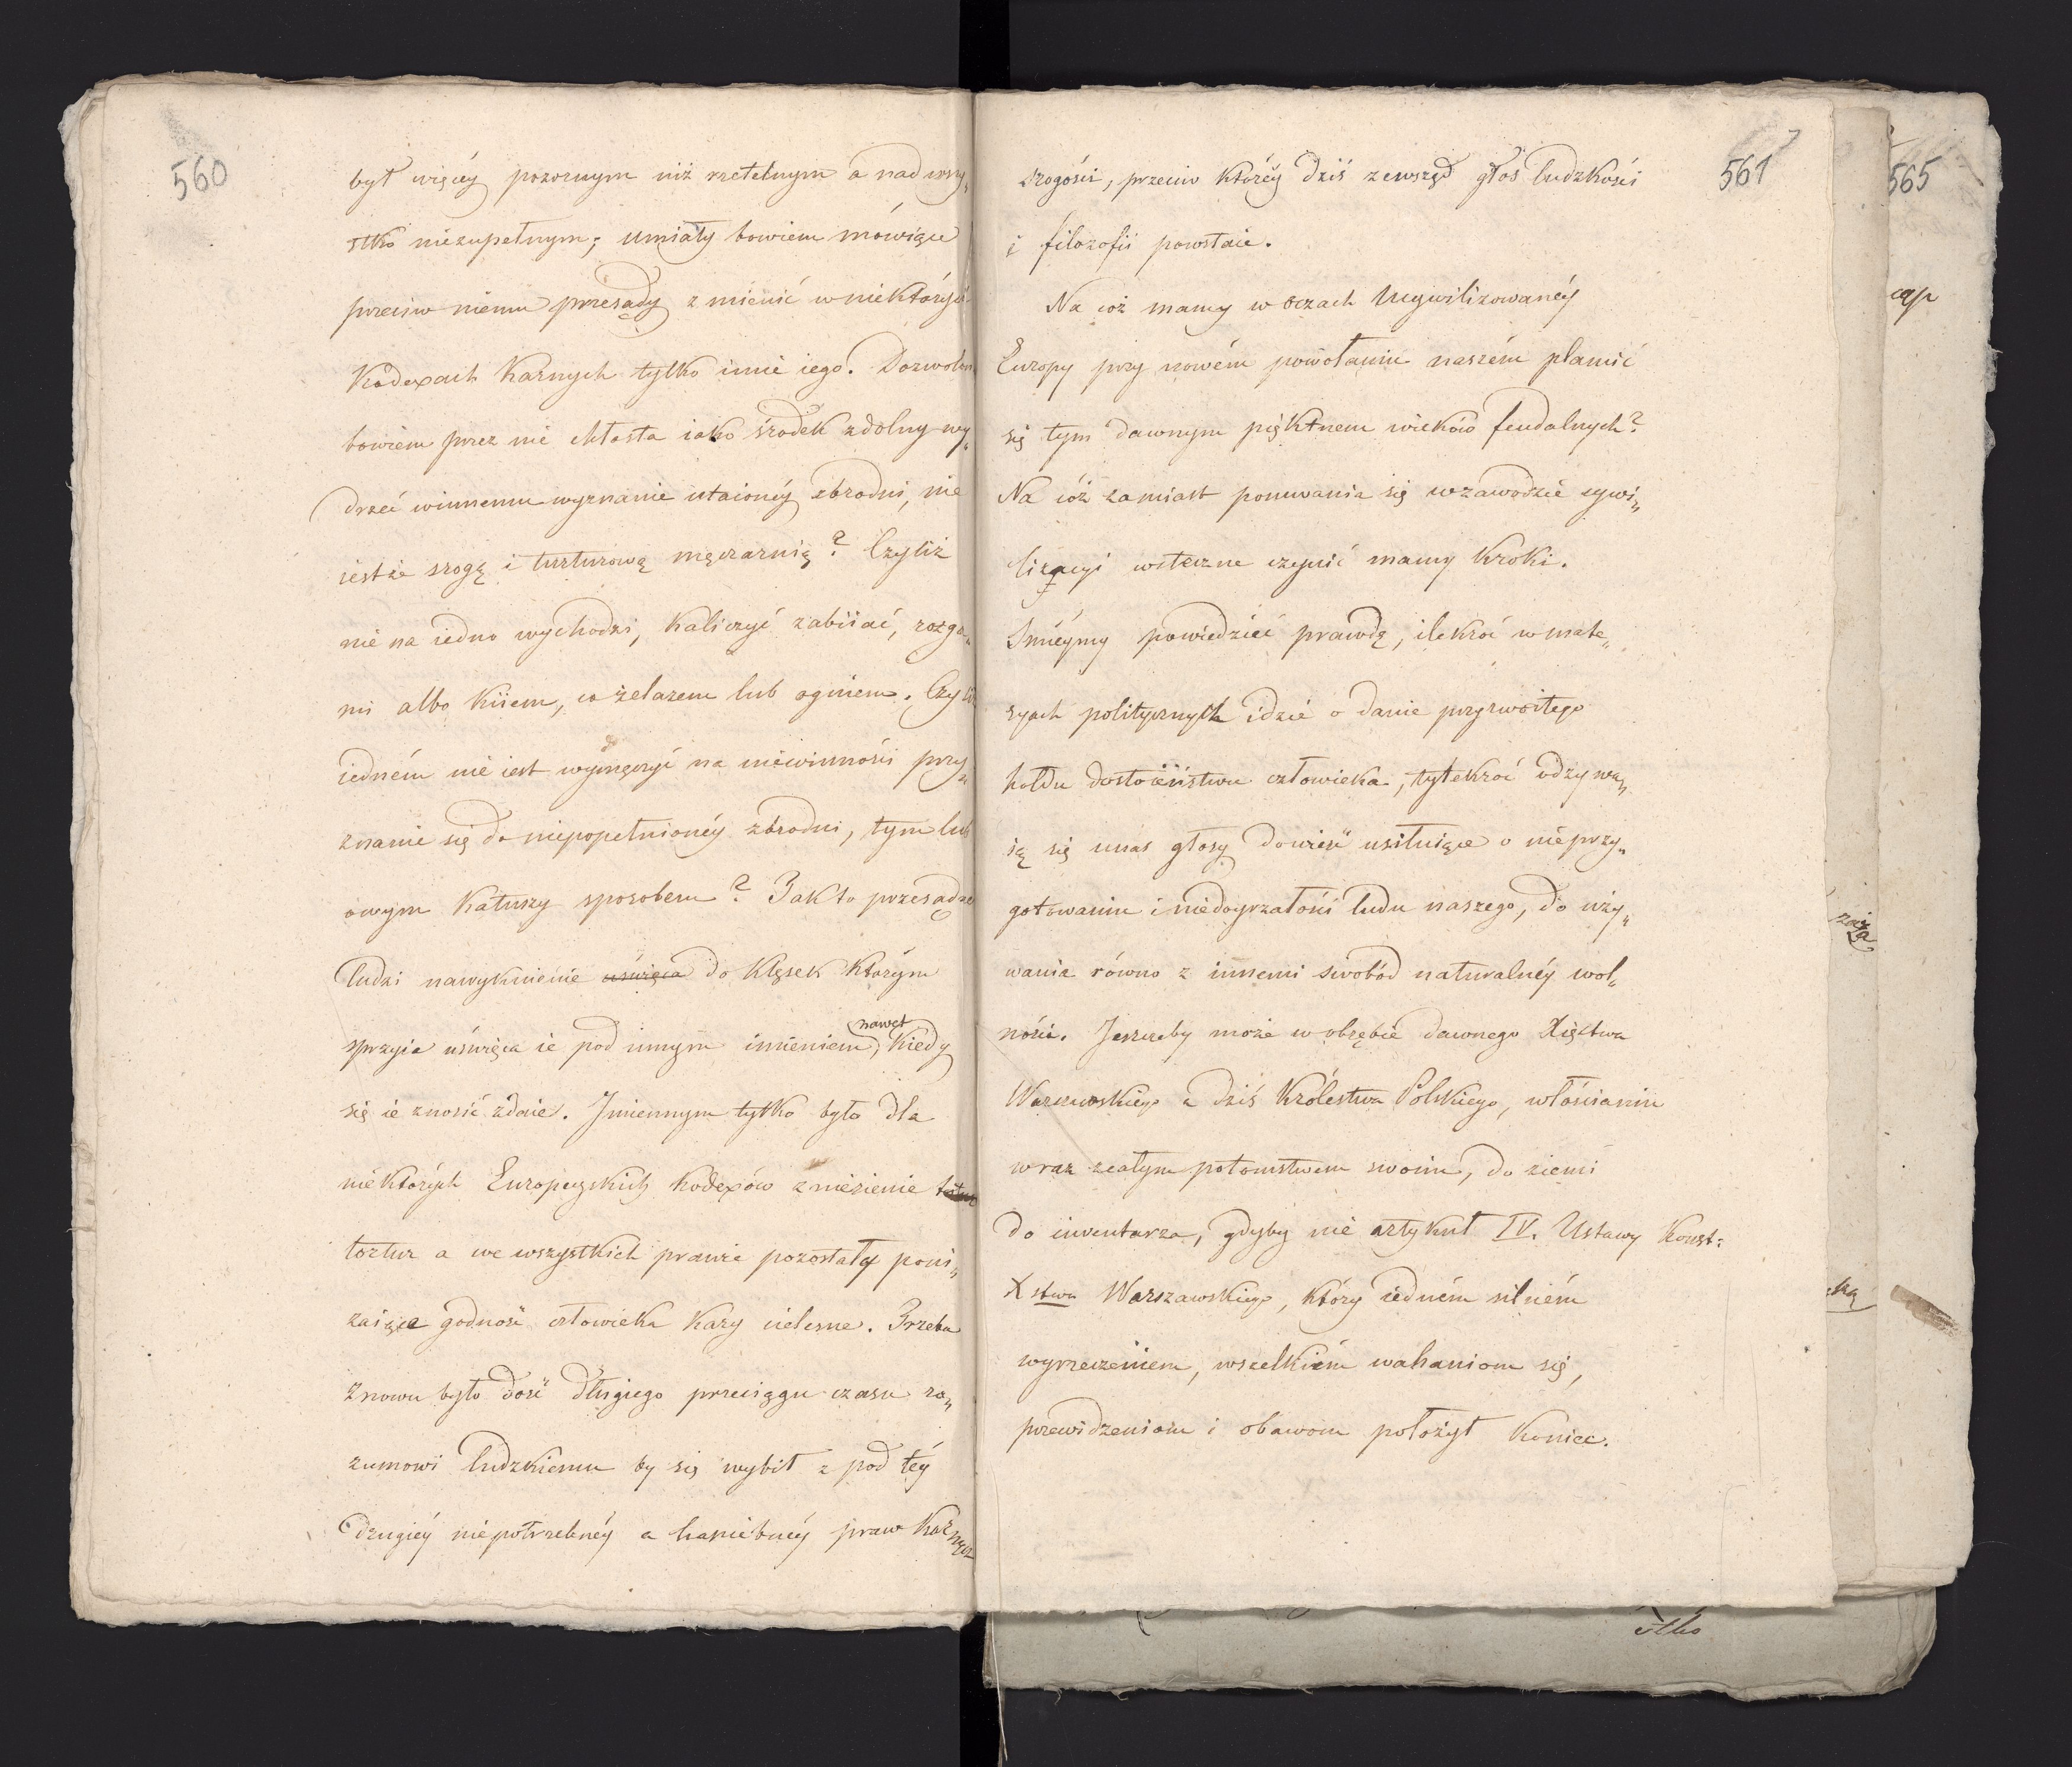 560
był więcéy pozornym niż rzetelnym a nad wszy„
stko niezupełnym; umiały bowiem mówiące
przeciw niemu przesądy zmienić w niektórych
Kodexach Karnych tylko imie iego. Dozwolona
bowiem przez nie chłosta iako środek zdolny wy„
drzeć winnemu wyznanie utaionéy zbrodni, nie
iestże srogą i torturową męczarnią? Czyliż
nie na iedno wychodzi, kaliczyć zabiiać, rózga„
mi albo kiiem, co żelazem lub ogniem. Czyliż
iedném nie iest wymęczyć na niewinności przy„
znanie się do niepopełnionéy zbrodni, tym lub
owym katuszy sposobem? Tak to przesądne
ludzi nawyknienie uświęca do klęsek którym
sprzyia uświęca ie pod innym imieniem, nawet kiedy
się ie znosić zdaie. Jmiennym tylko było dla
niektórych Europeyskich kodexów zniesienie
tortur a we wszystkich prawie pozostały poni„
żaiące godność człowieka kary cielesne. Trzeba
znowu było dość długiego przeciągu czasu ro„
zumowi ludzkiemu by się wybił z pod téy
drugiéy niepotrzebnéy a haniebnéy praw karnych
561
srogości, przeciw któréy dziś zewsząd głos ludzkości
i filozofii powstaie.
Na cóż mamy w oczach Ucywilizowanéy
Europy przy nowém powołaniu naszém plamić
się tym dawnym piętnem wieków feudalnych?
Na cóż zamiast posuwania się w zawodzie cywi„
lizacyi wsteczne czynić mamy kroki.
Smiéymy powiedzieć prawdę, ilekroć w mate„
ryach politycznych idzie o danie przyzwoitego
hołdu dostoieństwu człowieka, tylekroć odzywa„
ią się u nas głosy dowieść usiłuiące o nieprzy„
gotowaniu i niedoyrzałości ludu naszego, do uży„
wania równo z innemi swobód naturalnéy wol„
ności. Jeszczeby może w obrębie dawnego Xięstwa
Warszawskiego a dziś Królestwa Polskiego, włościanin
wraz z całym potomstwem swoim, do ziemi
do inwentarza, gdyby nie artykuł IV. Ustawy Konst:
Xstwa Warszawskiego, który iedném silném
wyrzeczeniem, wszelkiém wahaniom się,
przewidzeniom i obawom położył koniec.
565